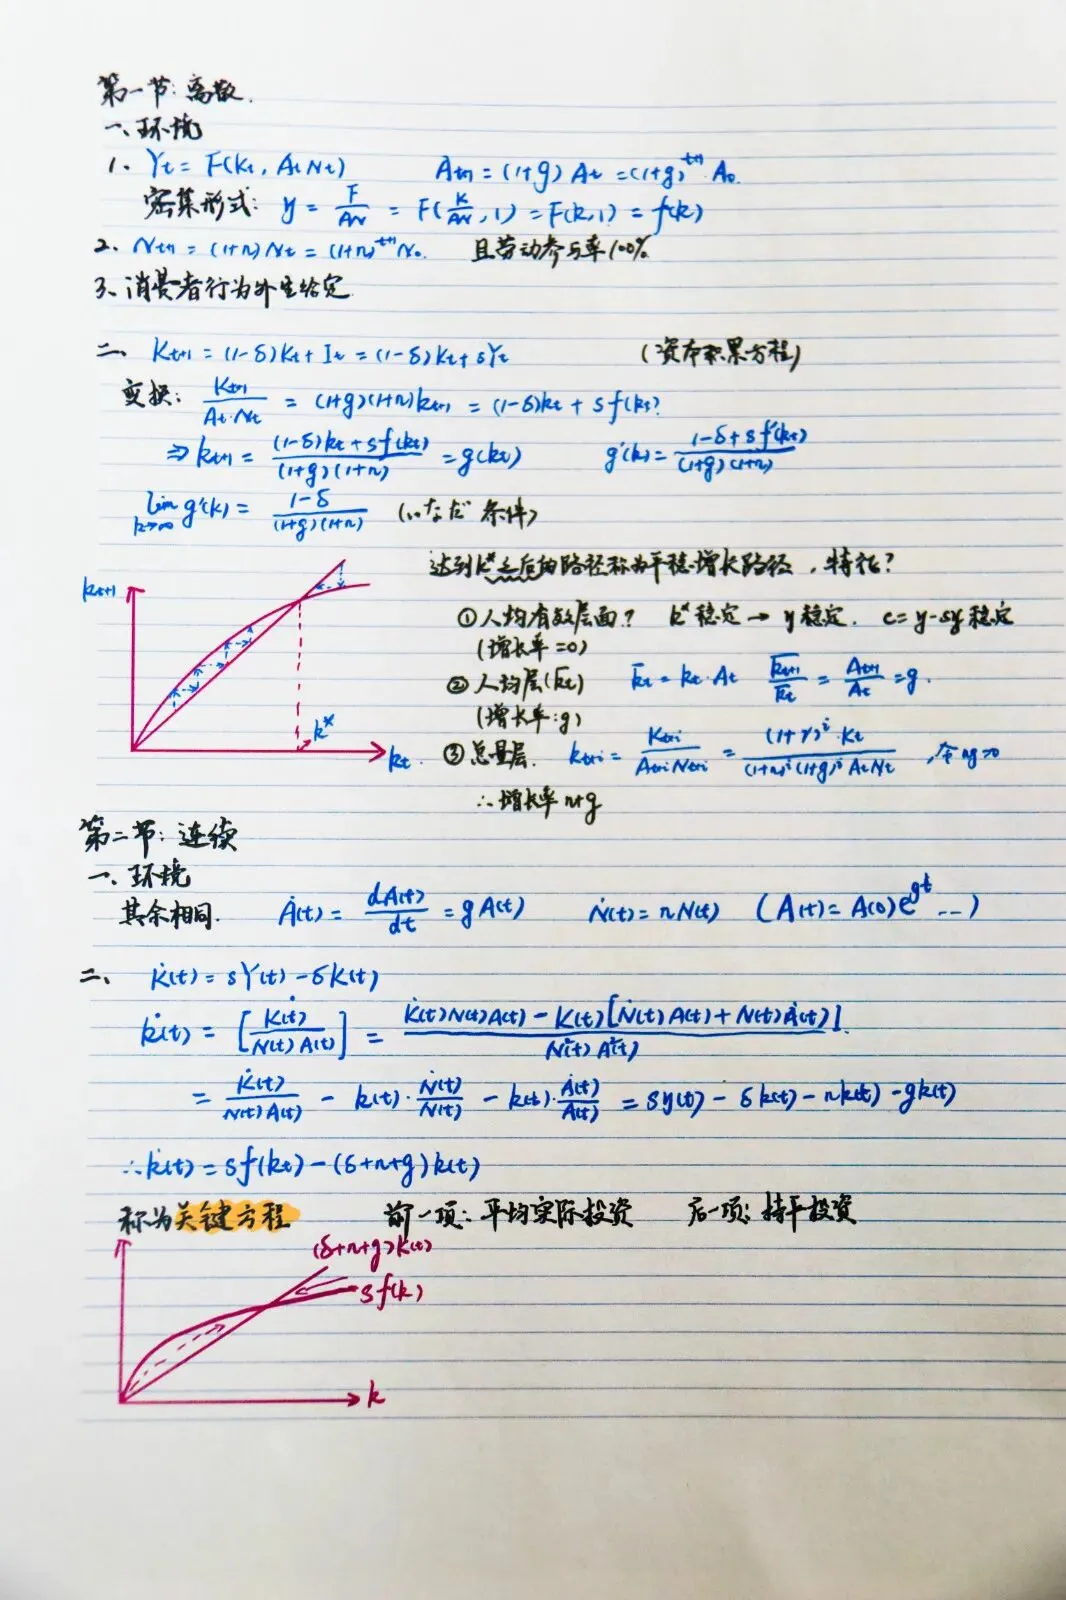 第一节：离散.
一、环境
1、Yt = F(Kt, AtNt)  At+1 = (1+g) At = (1+g)^t+1 A0.
密集形式：y = F/AN = F(K/AN, 1) = F(k,1) = f(k)
2、Nt+1 = (1+n)Nt = (1+n)^t+1 N0.  且劳动参与率100%
3、消费者行为外生给定
二、Kt+1 = (1-δ)Kt + It = (1-δ)Kt + sYt  (资本积累方程)
变换：Kt+1/At·Nt = (1+g)(1+n)kt+1 = (1-δ)kt + sf(kt)
⇒ kt+1 = (1-δ)kt + sf(kt)/(1+g)(1+n) = g(kt)  g'(k) = 1-δ+sf'(kt)/(1+g)(1+n)
lim k→∞ g'(k) = 1-δ/(1+g)(1+n)  (いなだ 条件)
达到k*之后的路径称为平稳增长路径，特征？
kt+1
①人均有效层面？ k*稳定 → y稳定. c = y-sy 稳定
(增长率=0)
②人均层(k̄t)  k̄t = kt·At  k̄t+1/k̄t = At+1/At = g.
(增长率：g)
k*
kt.
③总量层. kt+i = Kt+i/At+iNt+i = (1+γ)^i·Kt/(1+n)^i(1+g)^i AtNt, 令ng≈0
∴增长率 n+g
第二节：连续
一、环境
其余相同. Ȧ(t) = dA(t)/dt = gA(t)  Ṅ(t) = nN(t)  (A(t) = A(0)e^gt ...)
二、K̇(t) = sY(t) - δK(t)
k̇(t) = [K(t)/N(t)A(t)]˙ = K̇(t)N(t)A(t) - K(t)[Ṅ(t)A(t) + N(t)Ȧ(t)]/N²(t)A²(t)
= K̇(t)/N(t)A(t) - k(t)·Ṅ(t)/N(t) - k(t)·Ȧ(t)/A(t) = sy(t) - δk(t) - nk(t) - gk(t)
∴k̇(t) = sf(kt) - (δ+n+g)k(t)
称为关键方程  前一项：平均实际投资  后一项：持平投资
(δ+n+g)k(t)
sf(k)
k